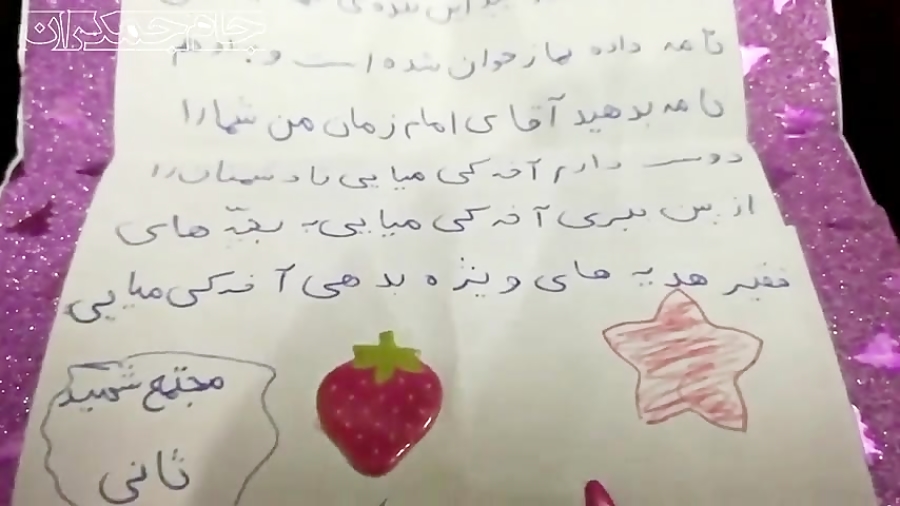 جام جمکران
این بنده ی
نامه داده نماز خوان شده است و
نامه بدهید آقای امام زمان من شما را
دوست دارم آخه کی میایی تا دشمنان را
از بین ببری آخه کی میایی به بچّه های
فقیر هدیه های ویژه بدهی آخه کی میایی
مجتمع شهید
ثانی